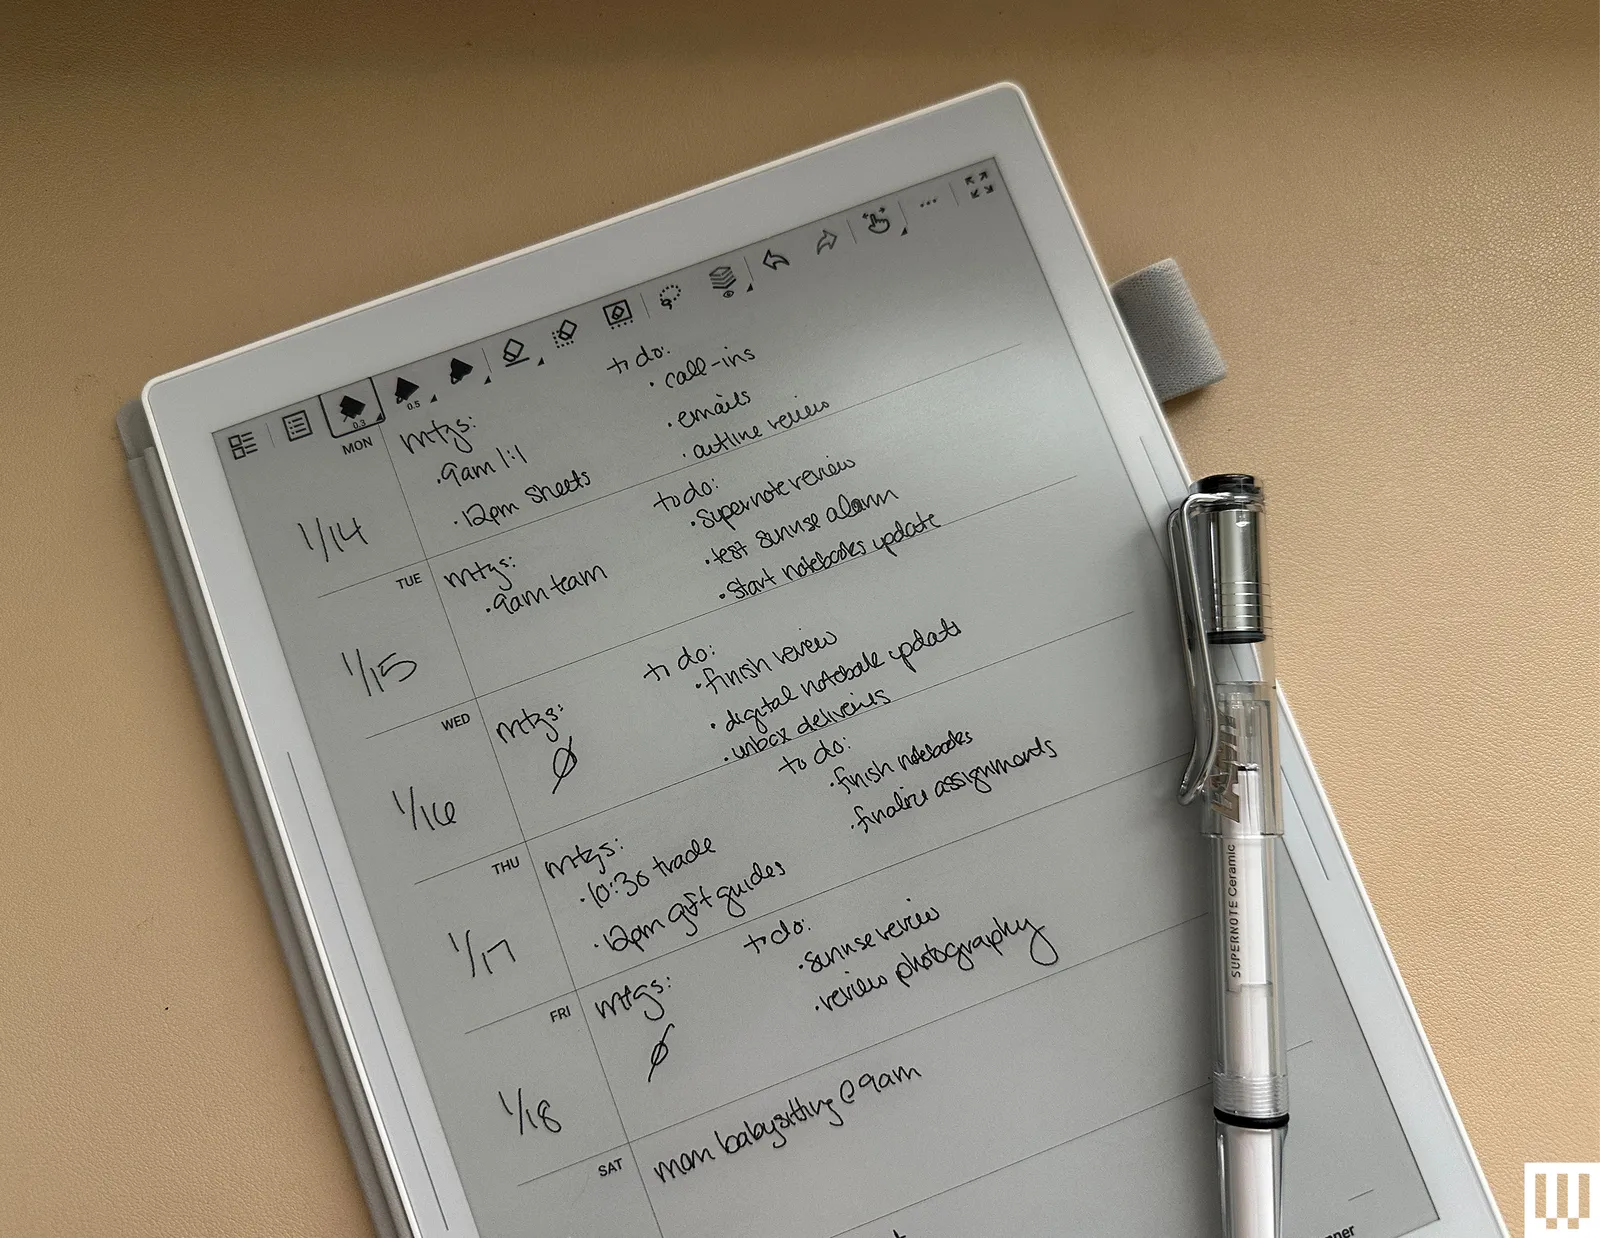 0.3
0.5
MON
1/14
mtgs:
• 9am 1:1
• 12pm sheets
to do:
• call-ins
• emails
• outline review
TUE
1/15
mtgs:
• 9am team
to do:
• supernote review
• test sunrise alarm
• start notebooks update
WED
1/16
mtgs:
Ø
to do:
• finish review
• digital notebook update
• unbox deliveries
THU
1/17
mtgs:
• 10:30 trade
• 12pm gift guides
to do:
• finish notebooks
• finalize assignments
FRI
1/18
mtgs:
Ø
to do:
• sunrise review
• review photography
SAT
mom babysitting @ 9am
LAMY
SUPERNOTE Ceramic
W